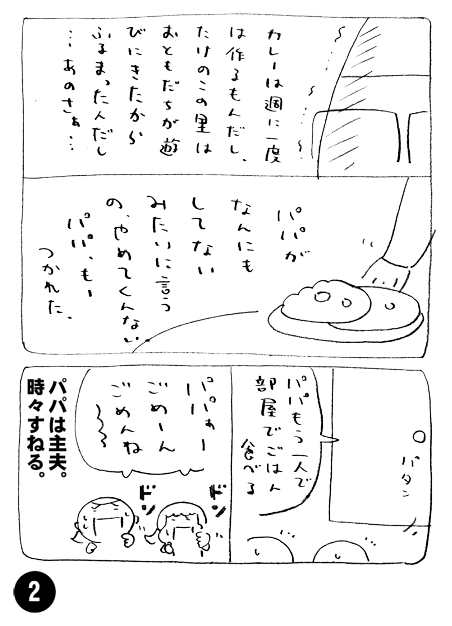 カレーは週に一度
は作るもんだし、
たけのこの里は
おともだちが遊
びにきたから
ふるまったんだし
…あのさぁ…
パパが
なんにも
してない
みたいに言う
の、やめてくんない
パパ、もー
つかれた、
パパもう一人で
部屋でごはん
食べる
パタン
パパぁー
ごめーん
ごめんね
ドン
ドン
パパは主夫。
時々すねる。
2